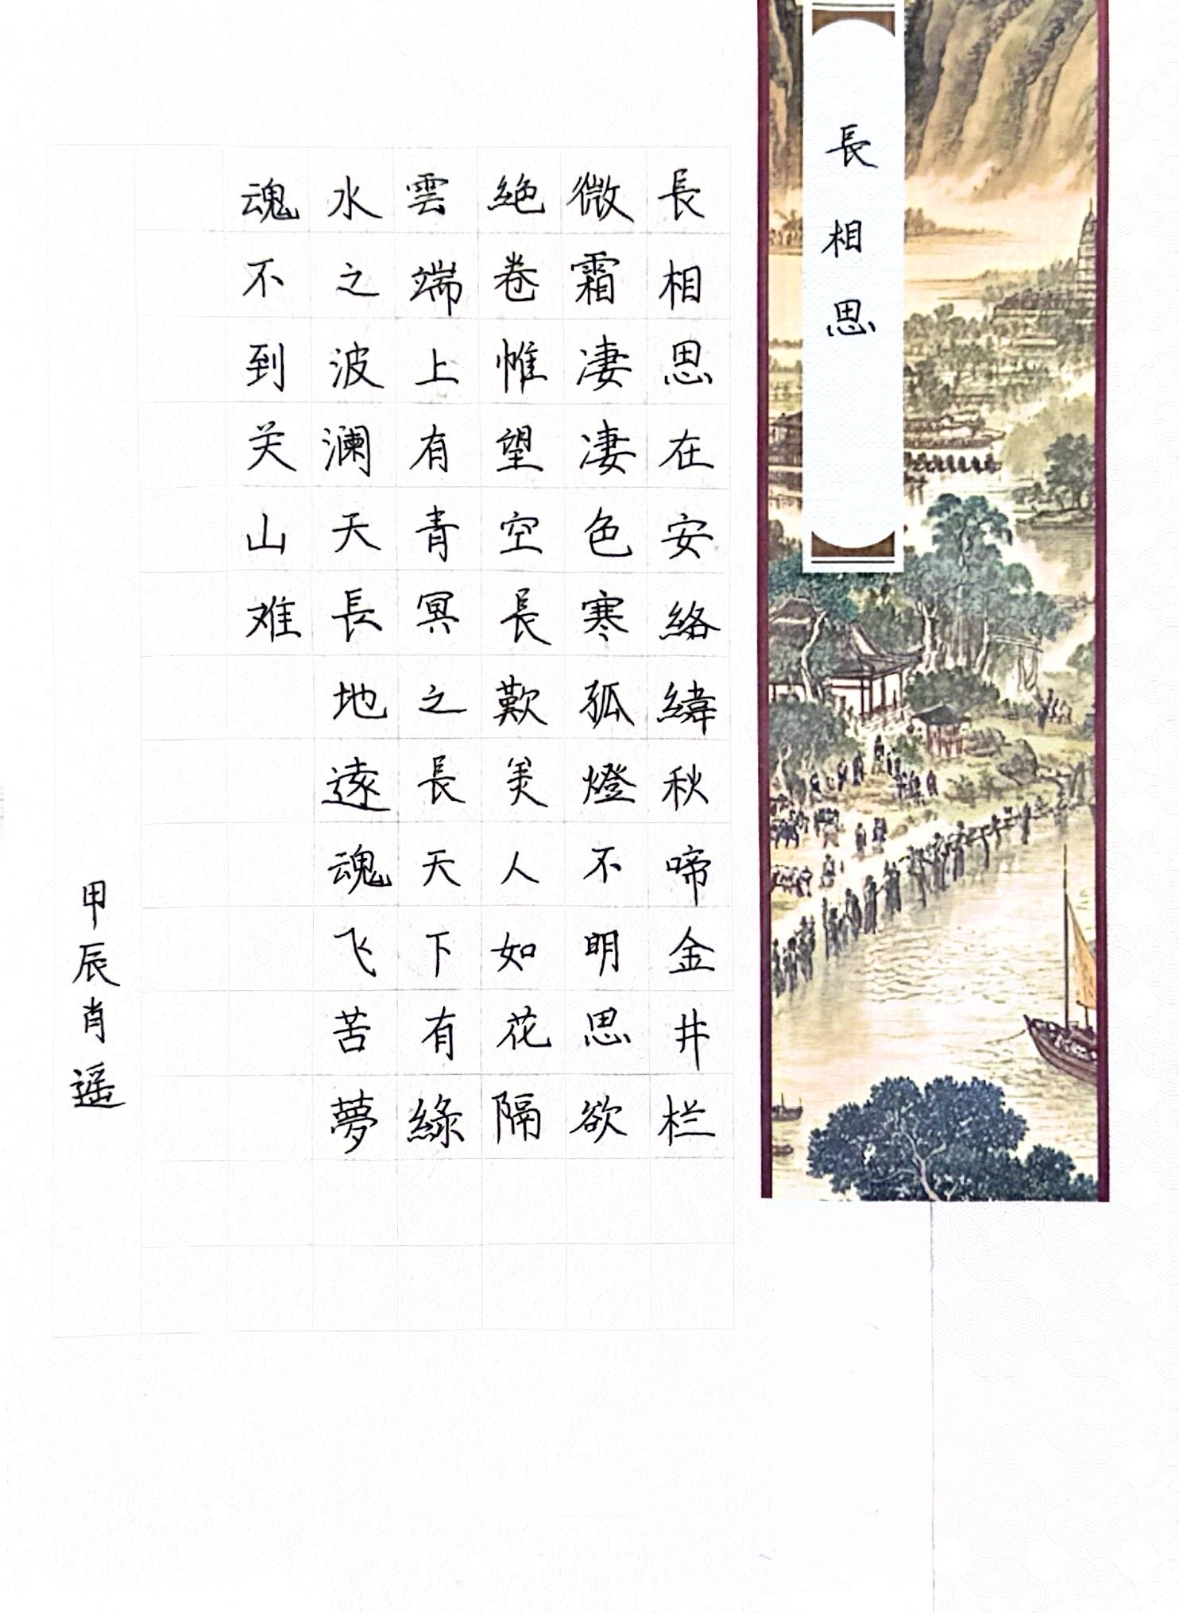 長相思
長相思在安絡緯秋啼金井栏
微霜凄凄色寒孤燈不明思欲
絶卷惟望空長歎美人如花隔
雲端上有青冥之長天下有綠
水之波澜天長地遠魂飞苦夢
魂不到关山难
甲辰肖遥